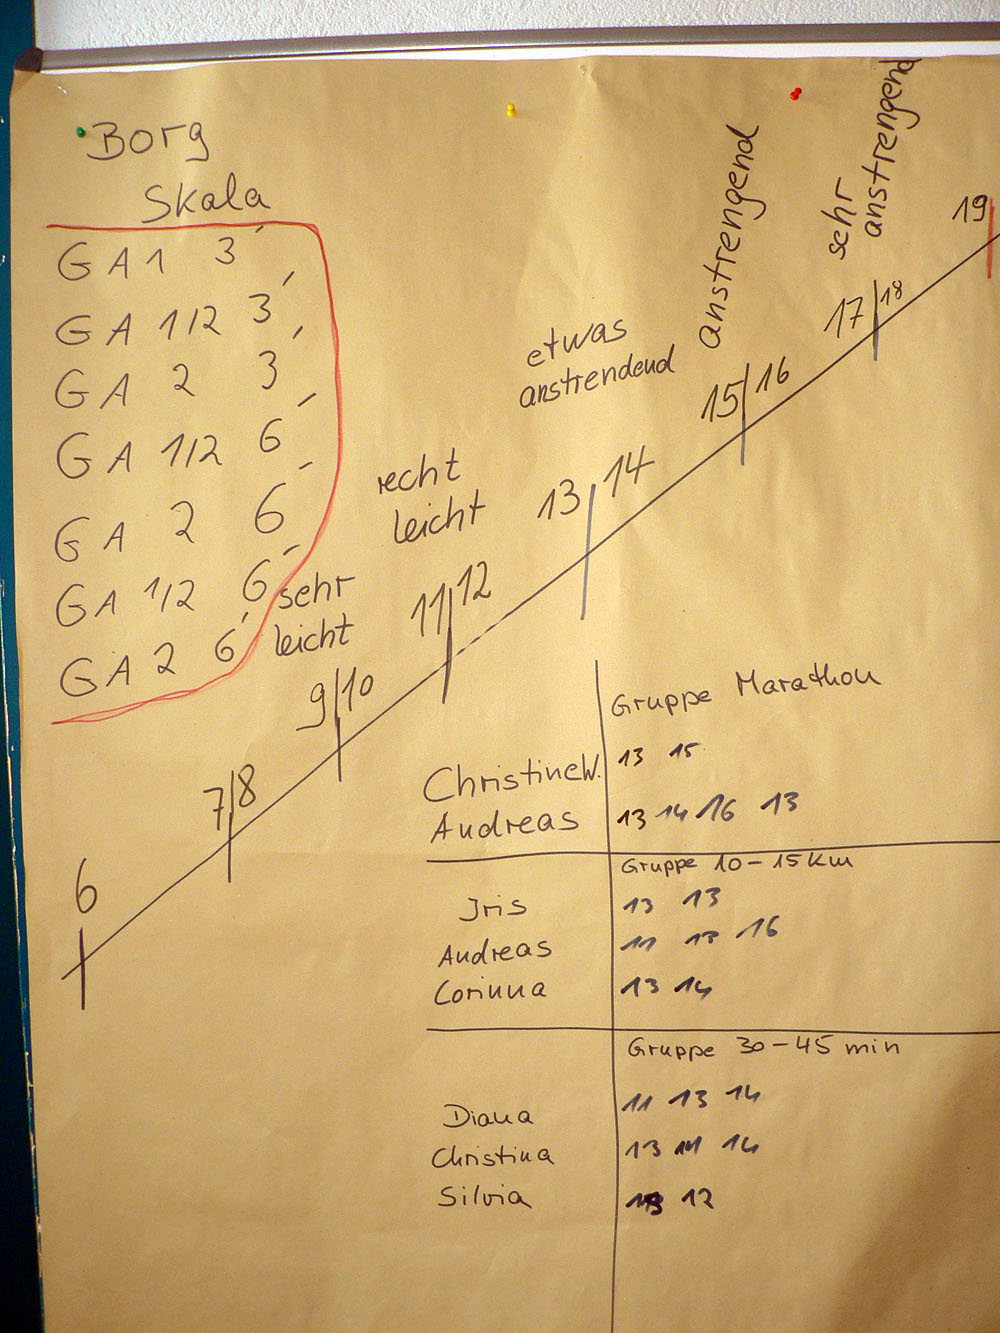 Borg
Skala
GA 1 3´
GA 1/2 3´
GA 2 3´
GA 1/2 6´
GA 2 6´
GA 1/2 6´
GA 2 6´
6
7|8
9|10
sehr
leicht
11|12
recht
leicht
13|14
etwas
anstrendend
15|16
anstrengend
17|18
sehr
anstrengend
19
Gruppe Marathon
ChristineW. 13 15
Andreas 13 14 16 13
Gruppe 10-15 km
Iris 13 13
Andreas 11 13 16
Corinna 13 14
Gruppe 30-45 min
Diana 11 13 14
Christina 13 11 14
Silvia 12